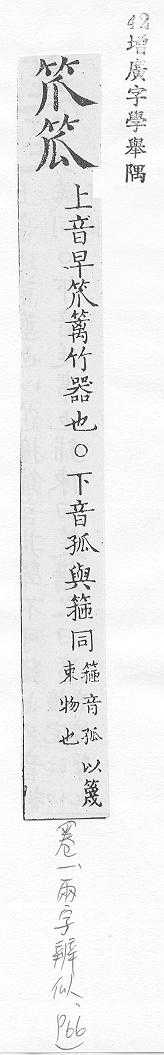 42增廣字學舉隅
笊
笟
上音早笊篱竹器也○下音孤與箍同箍音孤以篾
束物也
卷一、兩字辨似、P66